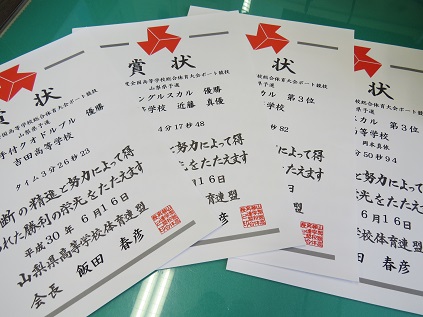 賞状
全国高等学校総合体育大会ボート競技
山梨県予選
手付クオドルプル 優勝
吉田高等学校
タイム3分26秒23
断の精進と努力によって得
られた勝利の栄光をたたえます
平成30年 6月16日
山梨県高等学校体育連盟
会長 飯田 春彦
賞状
全国高等学校総合体育大会ボート競技
山梨県予選
ングルスカル 優勝
学校 近藤 真優
4分17秒48
努力によって得
をたたえます
16日
育連盟
春彦
状
校総合体育大会ボート競技
予選
カル 第3位
等学校
82
によって得
たえます
16日
状
育大会ボート競技
第3位
等学校
分50秒94
力によって得
をたたえます
6月16日
学校体育連盟
田 春彦